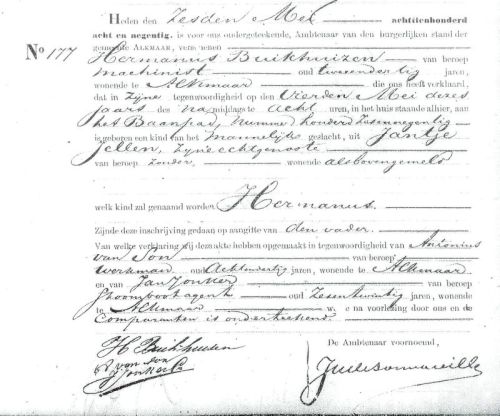 Heden den Zesden Mei achttienhonderd
acht en negentig, is voor ons ondergeteekende, Ambtenaar van den burgerlijken stand der
gemeente ALKMAAR, verschenen
No 177
Hermanus Buikhuizen van beroep
machinist oud tweeendertig jaren,
wonende te Alkmaar die ons heeft verklaard,
dat in Zijne tegenwoordigheid op den Vierden Mei dezes
jaars des Na middags te acht uren, in het huis staande alhier, aan
het Baanpad, nummer honderd zesennegentig
is geboren een kind van het Mannelijk geslacht, uit Jantje
Jellen, Zijne echtgenoote
van beroep zonder, wonende als bovengemeld
welk kind zal genaamd worden Hermanus.
Zijnde deze inschrijving gedaan op aangifte van den vader.
Van welke verklaring wij deze akte hebben opgemaakt in tegenwoordigheid van Antonius
van Son van beroep
werkman oud Achtendertig jaren, wonende te Alkmaar
en Jan Jonker van beroep
Stoomboot agent oud Zesentwintig jaren, wonende
te Alkmaar w e na voorlezing door ons en de
Comparanten is onderteekend.
H Buikhuizen
A van Son
J Jonker
De Ambtenaar voornoemd,